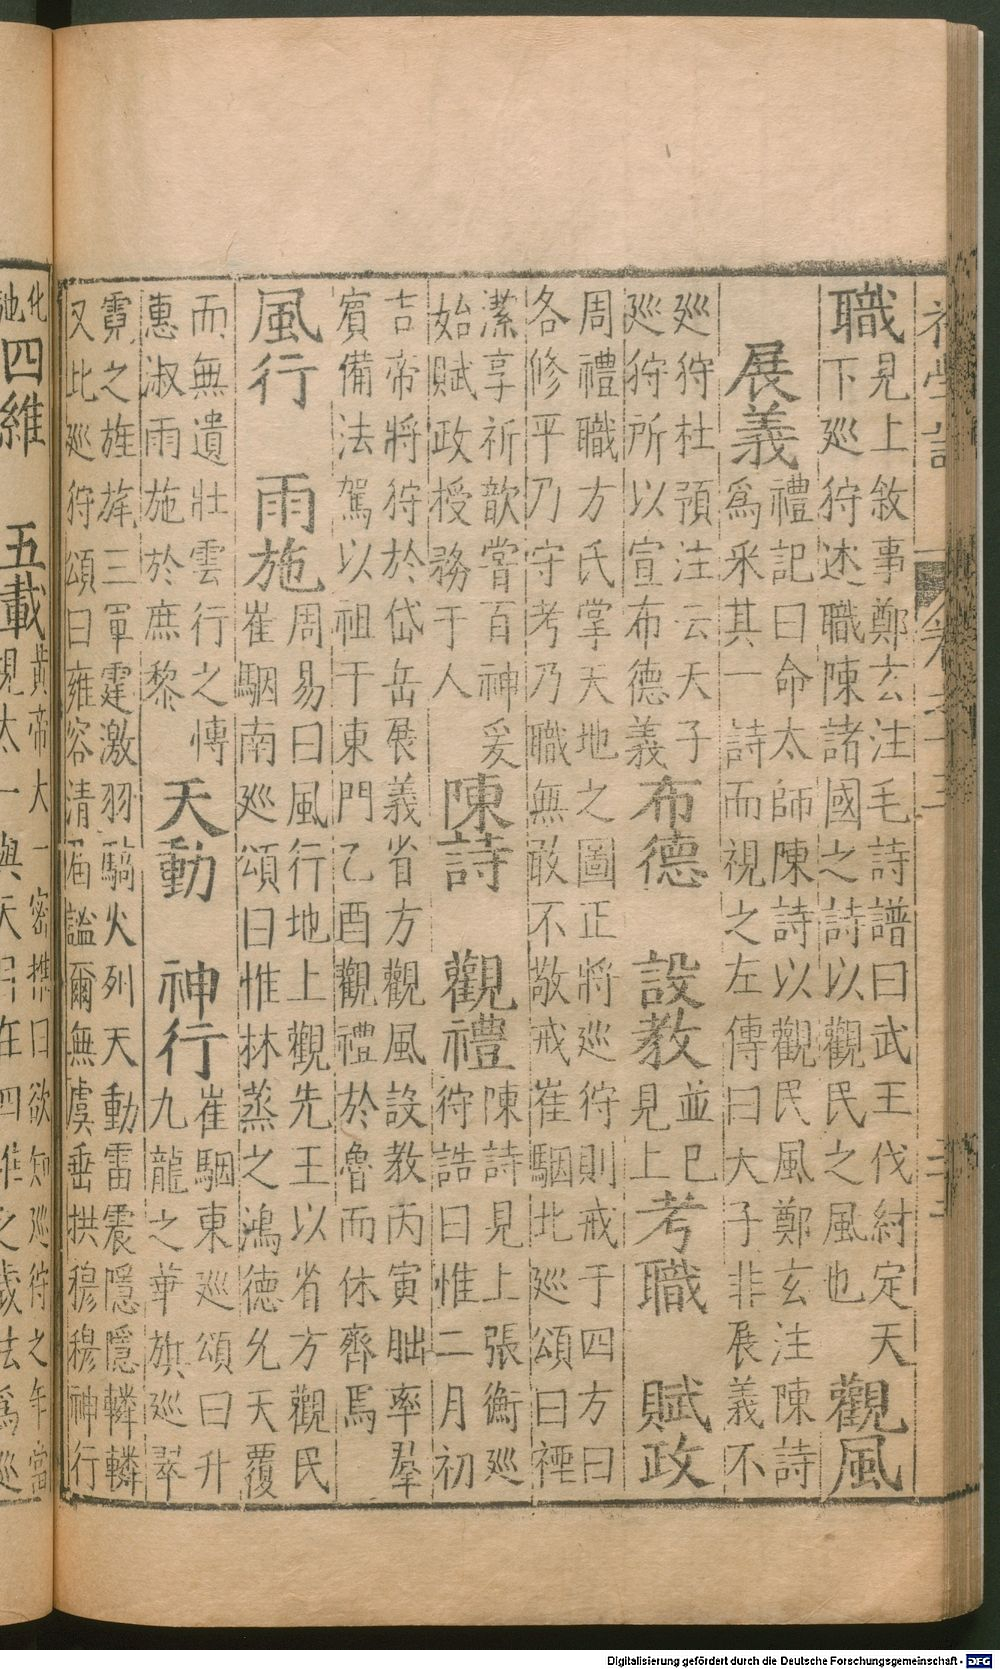 職見上敘事鄭玄注毛詩譜曰武王伐紂定天
下巡狩述職陳諸國之詩以觀民之風也觀風
展義禮記曰命太師陳詩以觀民風鄭玄注陳詩
為采其一詩而視之左傳曰天子非展義不
巡狩杜預注云天子
巡狩所以宣布德義布德 設教並已
見上考職 賦政
周禮職方氏掌天地之圖正將巡狩則戒于四方曰
各修平乃守考乃職無敢不敬戒崔駰北巡頌曰禋
潔享祈歆嘗百神爰
始賦政授務于人陳詩 觀禮陳詩見上張衡巡
狩誥曰惟二月初
吉帝將狩於岱岳展義省方觀風設教丙寅朏率羣
賓備法駕以祖于東門乙酉觀禮於魯而休齊焉
風行 雨施周易曰風行地上觀先王以省方觀民
崔駰南巡頌曰惟林蒸之鴻德允天覆
而無遺壯雲行之博
惠淑雨施於庶黎天動 神行崔駰東巡頌曰升
九龍之華旗巡翠
霓之旌旄三軍霆激羽騎火列天動雷震隱隱轔轔
又此巡狩頌曰雍容清届謐爾無虞垂拱穆穆神行
四維 五載黃帝太一密推曰欲知巡狩之年當
視太一與天目在四維之歲法為巡
Digitalisierung gefördert durch die Deutsche Forschungsgemeinschaft - DFG